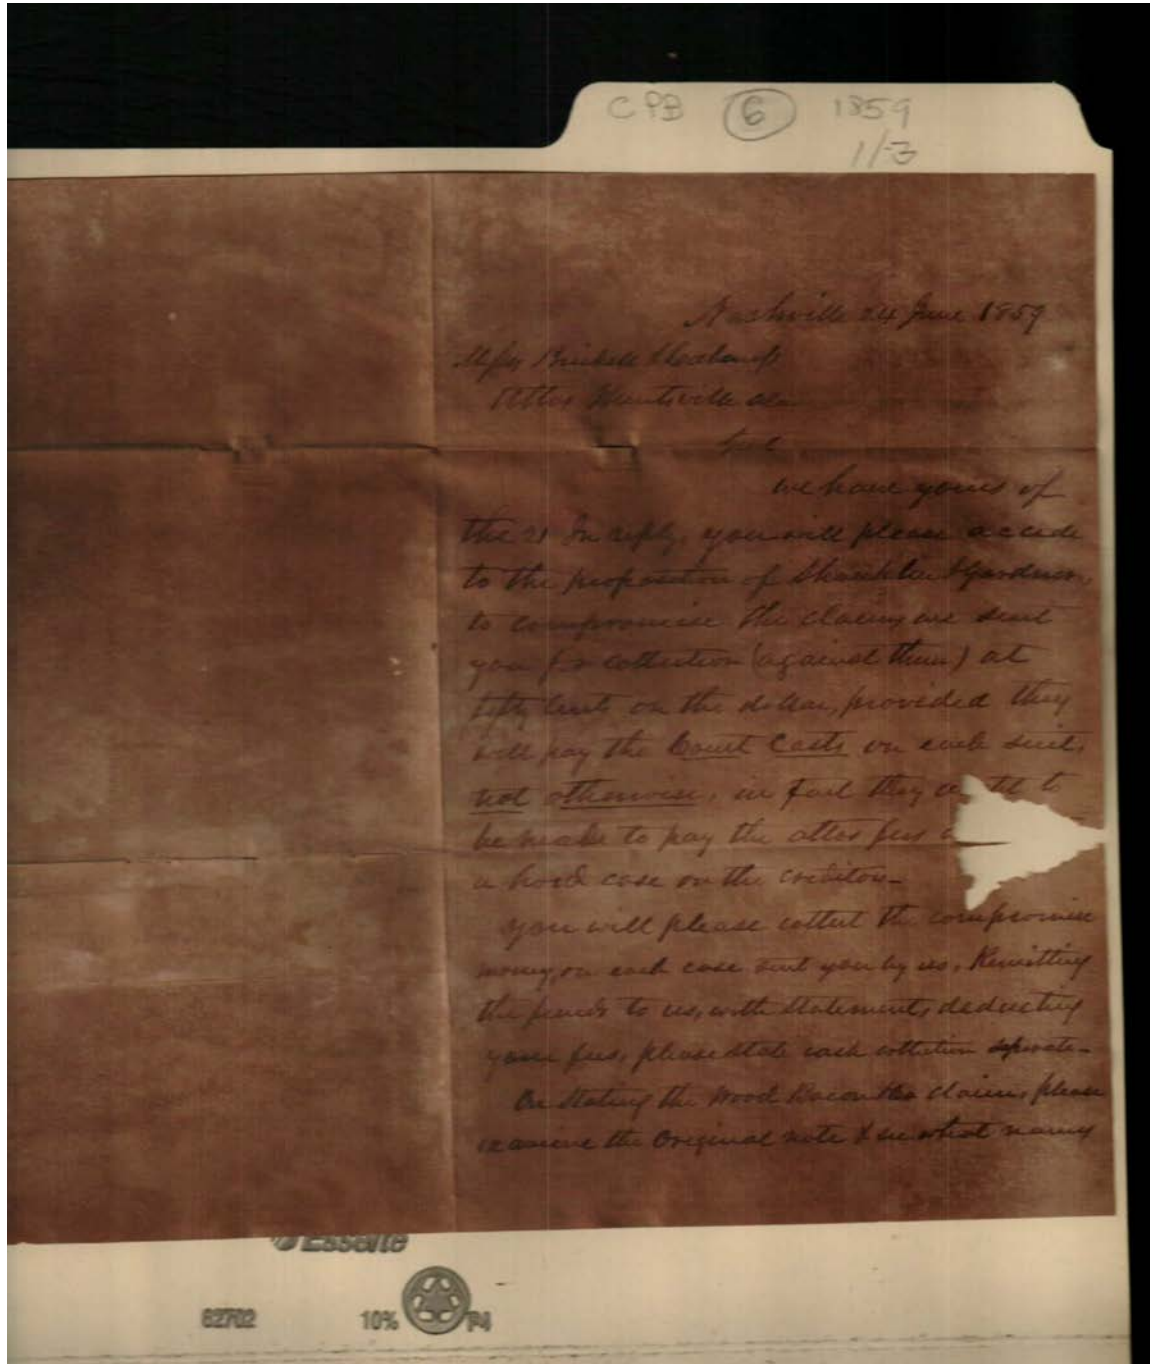 CPB 6 1859
1/-3
Nashville 24 June 1859
Attos Huntsville Ala
we have yours of
the 21 In reply, you will please accede
to the proposition of & Gardner,
to compromise the claims we sent
you for collection (against them) at
fifty cents on the dollar, provided they
will pay the Court Costs on each suit,
not otherwise, in fact they to
be made to pay the attos fees
a hard case on the creditors-
you will please collect the compromise
money, on each case sent you by us, Remitting
the funds to us, with statement, deducting
your fees, please state each collection seperate-
On stating the Wood Bacon &Co claim, please
examine the Original note & see what names
Esselte
62702 10% P4